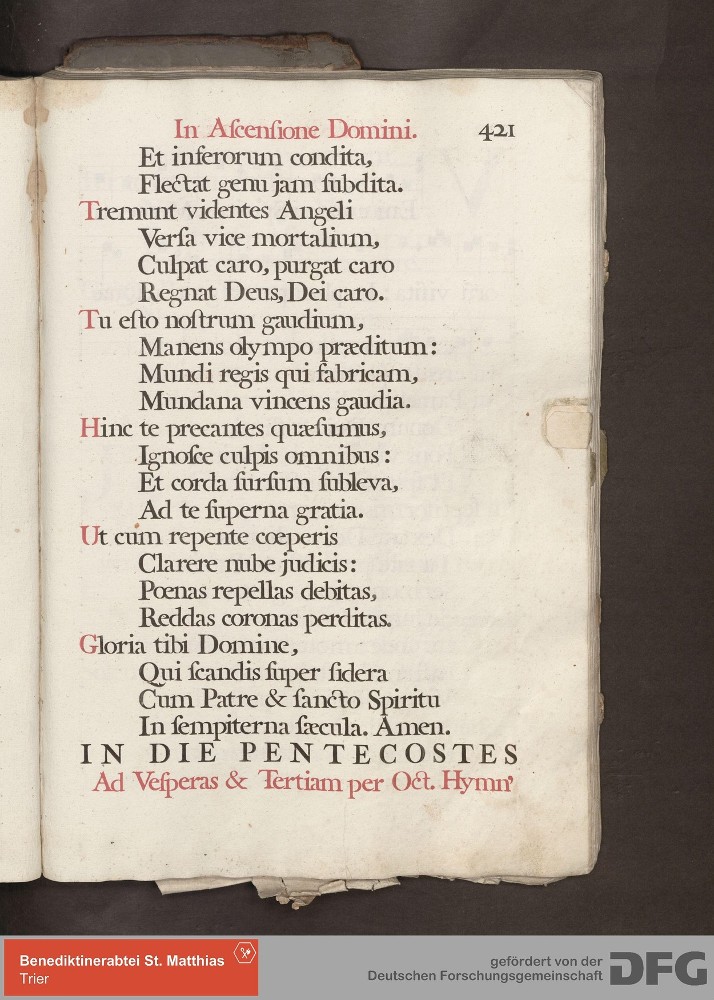 In Aſcenſione Domini. 421
Et inferorum condita,
Flectat genu jam ſubdita.
Tremunt videntes Angeli
Verſa vice mortalium,
Culpat caro, purgat caro
Regnat Deus, Dei caro.
Tu eſto noſtrum gaudium,
Manens olympo præditum:
Mundi regis qui fabricam,
Mundana vincens gaudia.
Hinc te precantes quæſumus,
Ignoſce culpis omnibus:
Et corda ſurſum ſubleva,
Ad te ſuperna gratia.
Ut cum repente cœperis
Clarere nube judicis:
Pœnas repellas debitas,
Reddas coronas perditas.
Gloria tibi Domine,
Qui ſcandis ſuper ſidera
Cum Patre & ſancto Spiritu
In ſempiterna ſæcula. Amen.
IN DIE PENTECOSTES
Ad Veſperas & Tertiam per Oct. Hymn'
Benediktinerabtei St. Matthias
Trier
gefördert von der
Deutschen Forschungsgemeinschaft DFG